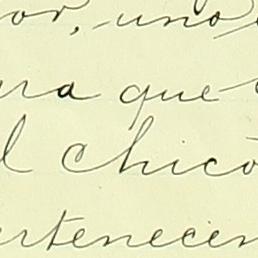 or, uno
ra que
l chico
ertenecen